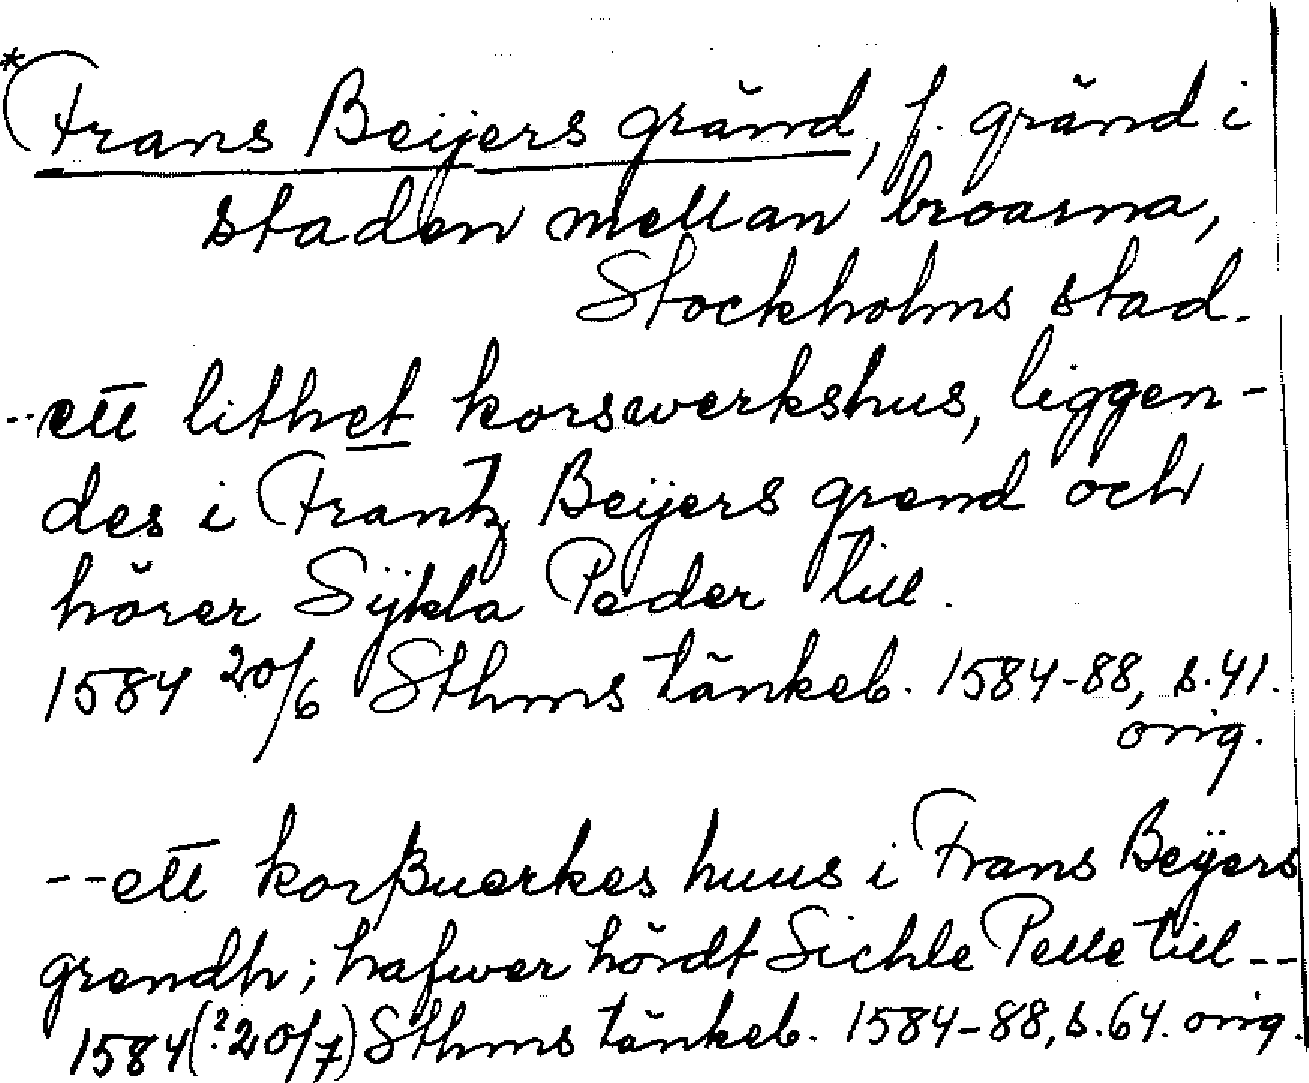 *Frans Beijers gränd, f. gränd i
staden mellan broarna,
Stockholms stad.
--ett lithet korswerkshus, liggen-
des i Frantz Beÿers grend och
hörer Sijkla Peder till.
1584 20/6 Sthms tänkeb. 1584-88, s. 41.
orig.
--ett korßuerkes huus i Frans Beÿers
grendh; hafwer hördt Sichle Pelle till --
1584 (?20/7) Sthms tänkeb. 1584-88, s. 64. orig.